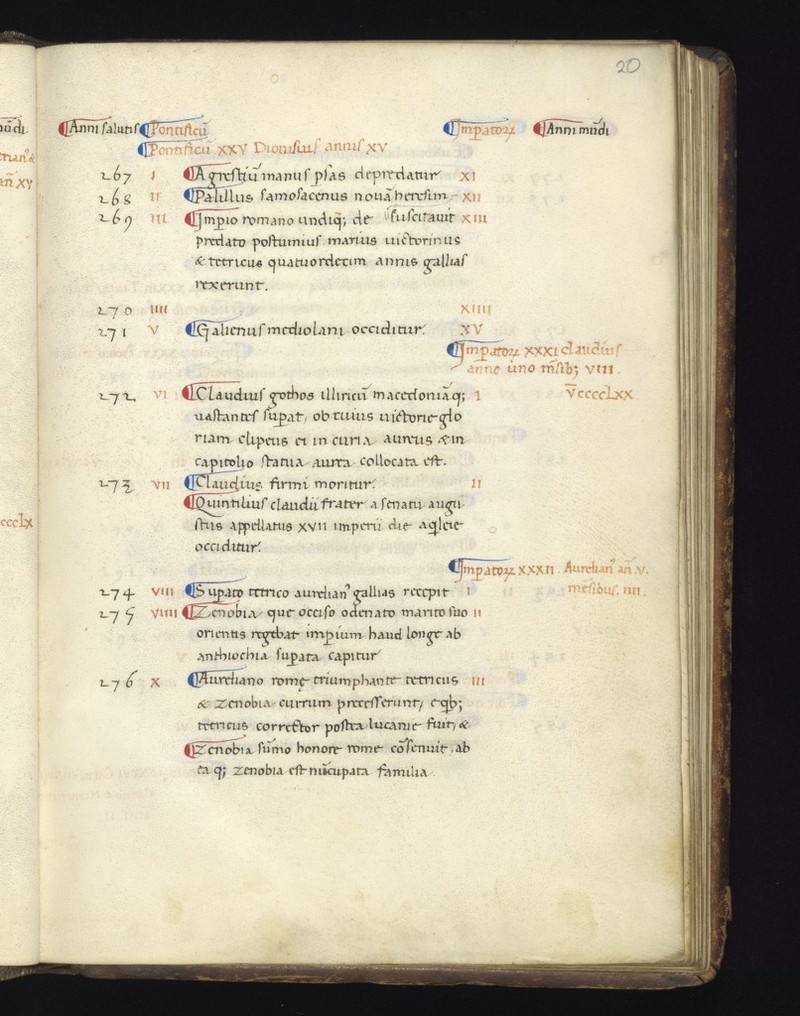 20
Anni salutis Pontificũ Imperatorꝝ Anni mũdi
Pontificũ XXV Dionisius annis XV
267 I Agrestiũ manus p̃sas depredatur XI
268 II Paullus samosacenus nouã heresim XII
269 III Imp̃io romano undiq; de suscitauit XIII
predato postumius marius uictorinus
& tetricus quatuordecim annis gallias
rexerunt.
270 IIII XIIII
271 V Galienus mediolani occiditur. XV
Imp̃atorꝝ XXXI claudius
anno uno m̃sib; VIII.
272 VI Claudius gothos illiricũ macedoniãq; I V̄CCCCLXX
uastantes sup̃at, ob cuius uictorie glo
riam clipeus ei in curia aureus & in
capitolio statua aurea collocata est.
273 VII Claudius firmi moritur. II
Quintilius claudii frater a senatu augu
stus appellatus XVII imperii die aq̃leie
occiditur.
Imp̃atorꝝ XXXII. Aurelian⁹ añ V.
mẽsibus IIII.
274 VIII Sup̃ato tetrico aurelian⁹ gallias recepit I
275 VIIII Zenobia que occiso odenato marito suo II
orientis regebat imp̃ium haud longe ab
anthiochia sup̃ata capitur
276 X Aureliano rome triumphante tetricus III
& Zenobia currum precesserunt, eqb;
tetricus corrector postea lucanie fuit, &
Zenobia sũmo honore rome cõsenuit, ab
ea q; Zenobia est nũcupata familia.